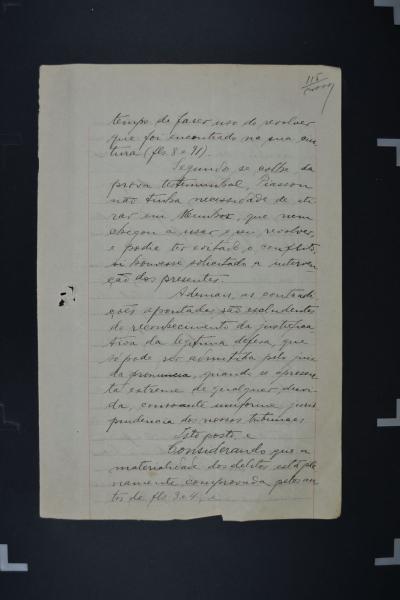 115
tempo de fazer uso do revolver
que foi encontrado na sua cin
tura (fls 8 e 91).
Segundo se colhe da
prova testimunhal, Piasson
não tinha necessidade de ati
rar em, que nem
chegou a usar o seu revolver,
e podia ter evitado o conflicto,
si houvesse solicitado a interven
ção dos presentes.
Ademais, as contradi
ções apontadas são excludentes
do reconhecimento da justifica
tiva da legitima defesa, que
só pode ser admittida pelo juiz
da pronuncia, quando se apresen
ta extreme de qualquer duvi
da, consoante uniforme juris
prudencia dos nossos tribunaes
Isto posto, e
Considerando que a
materialidade dos delitos está ple
namente comprovada pelos au
tos de fls 3 e 4, e